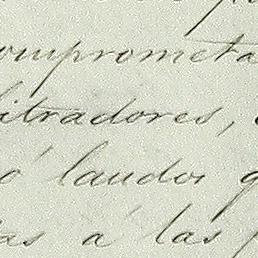 omprometa
bitradores,
ó laudos
as á las